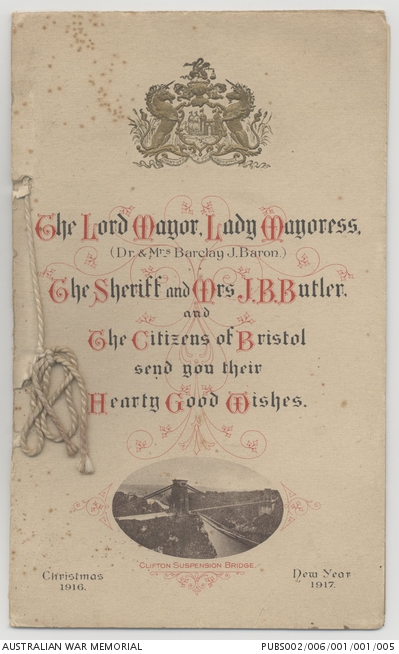 The Lord Mayor, Lady Mayoress,
(Dr. & Mrs Barclay J. Baron.)
The Sheriff and Mrs J.B. Butler,
and
The Citizens of Bristol
send you their
Hearty Good Wishes.
CLIFTON SUSPENSION BRIDGE.
Christmas
1916.
New Year
1917.
AUSTRALIAN WAR MEMORIAL
PUBS002/006/001/001/005